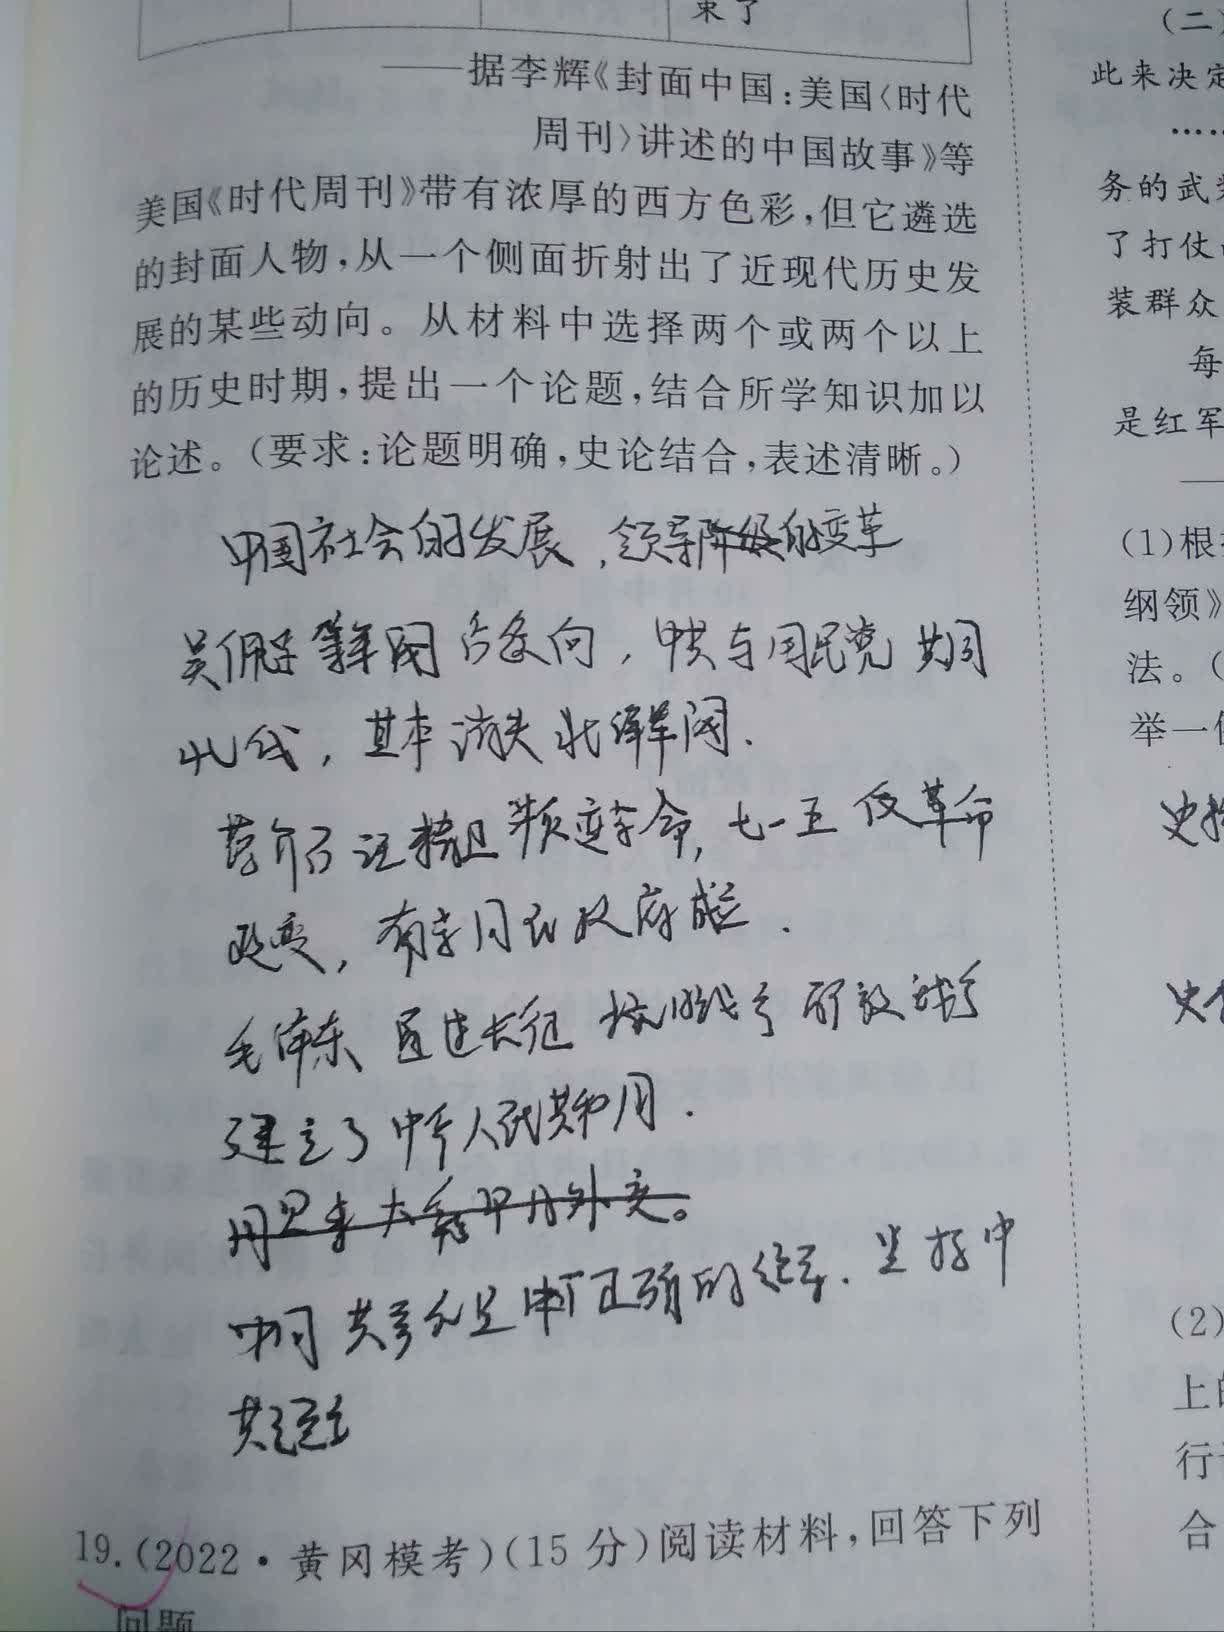 束了
——据李辉《封面中国:美国〈时代
周刊〉讲述的中国故事》等
美国《时代周刊》带有浓厚的西方色彩,但它遴选
的封面人物,从一个侧面折射出了近现代历史发
展的某些动向。从材料中选择两个或两个以上
的历史时期,提出一个论题,结合所学知识加以
论述。(要求:论题明确,史论结合,表述清晰。)
中国社会的发展,领导阶级的变革
吴佩孚等军阀 向,中共与国民党 共同
北伐,基本消灭北洋军阀.
蒋介石 汪精卫 叛变革命,七一五 反革命
政变,南京国民政府成立.
毛泽东 通过长征 抗日战争 解放战争
建立了中华人民共和国.
周恩来大 外交。
中国共 正确的 .坚持中
共
19.(2022·黄冈模考)(15分)阅读材料,回答下列
问题
(二)
此来决定
……
务的武装
了打仗
装群众
每
是红军
(1)根
纲领》
法。(
举一
史
史
(2)
上的
行
合